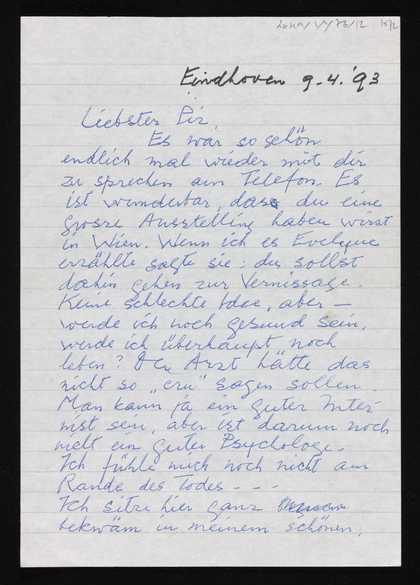 Eindhoven 9-4-'93
Liebster Pir,
Es war so schön
endlich mal wieder mit dir
zu sprechen am Telefon. Es
ist wunderbar, dass du eine
grosze Ausstelling haben wirst
in Wien. Wenn ich es Evelyne
erzählte sagte sie: du sollst
dahin gehen zur Vernissage.
Keine schlechte Idee, aber —
werde ich noch gesund sein,
werde ich überhaupt noch
leben? Der Arzt hätte das
nicht so „cru" sagen sollen.
Man kann ja ein guter Inter-
nist sein, aber ist darum noch
nicht ein guter Psychologe.
Ich fühle mich noch nicht am
Rande des Todes - - -
Ich sitze hier ganz
bekwäm in meinem schönen,